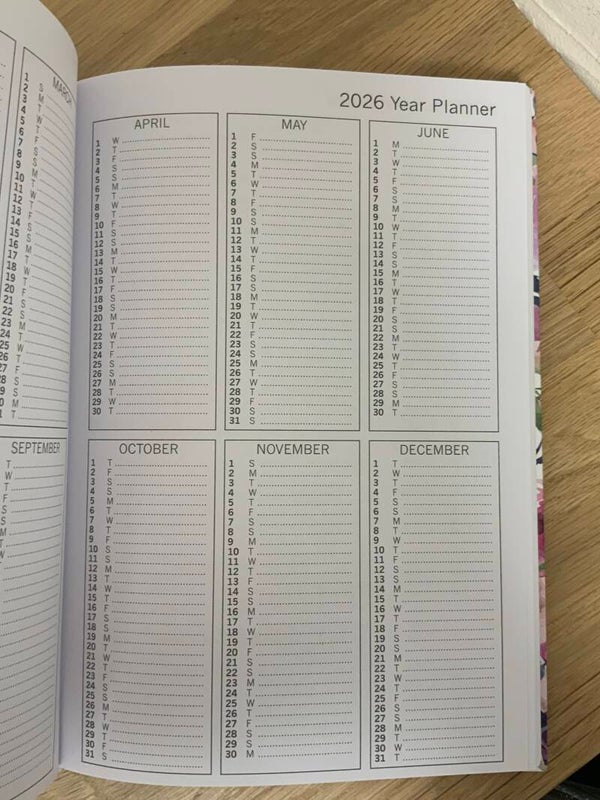 MARCH
1 S
2 M
3 T
4 W
5 T
6 F
7 S
8 S
9 M
10 T
11 W
12 T
13 F
14 S
15 S
16 M
17 T
18 W
19 T
20 F
21 S
22 S
23 M
24 T
25 W
26 T
27 F
28 S
9 S
0 M
1 T
SEPTEMBER
T
W
T
F
S
S
M
T
W
2026 Year Planner
APRIL
1 W
2 T
3 F
4 S
5 S
6 M
7 T
8 W
9 T
10 F
11 S
12 S
13 M
14 T
15 W
16 T
17 F
18 S
19 S
20 M
21 T
22 W
23 T
24 F
25 S
26 S
27 M
28 T
29 W
30 T
MAY
1 F
2 S
3 S
4 M
5 T
6 W
7 T
8 F
9 S
10 S
11 M
12 T
13 W
14 T
15 F
16 S
17 S
18 M
19 T
20 W
21 T
22 F
23 S
24 S
25 M
26 T
27 W
28 T
29 F
30 S
31 S
JUNE
1 M
2 T
3 W
4 T
5 F
6 S
7 S
8 M
9 T
10 W
11 T
12 F
13 S
14 S
15 M
16 T
17 W
18 T
19 F
20 S
21 S
22 M
23 T
24 W
25 T
26 F
27 S
28 S
29 M
30 T
OCTOBER
1 T
2 F
3 S
4 S
5 M
6 T
7 W
8 T
9 F
10 S
11 S
12 M
13 T
14 W
15 T
16 F
17 S
18 S
19 M
20 T
21 W
22 T
23 F
24 S
25 S
26 M
27 T
28 W
29 T
30 F
31 S
NOVEMBER
1 S
2 M
3 T
4 W
5 T
6 F
7 S
8 S
9 M
10 T
11 W
12 T
13 F
14 S
15 S
16 M
17 T
18 W
19 T
20 F
21 S
22 S
23 M
24 T
25 W
26 T
27 F
28 S
29 S
30 M
DECEMBER
1 T
2 W
3 T
4 F
5 S
6 S
7 M
8 T
9 W
10 T
11 F
12 S
13 S
14 M
15 T
16 W
17 T
18 F
19 S
20 S
21 M
22 T
23 W
24 T
25 F
26 S
27 S
28 M
29 T
30 W
31 T